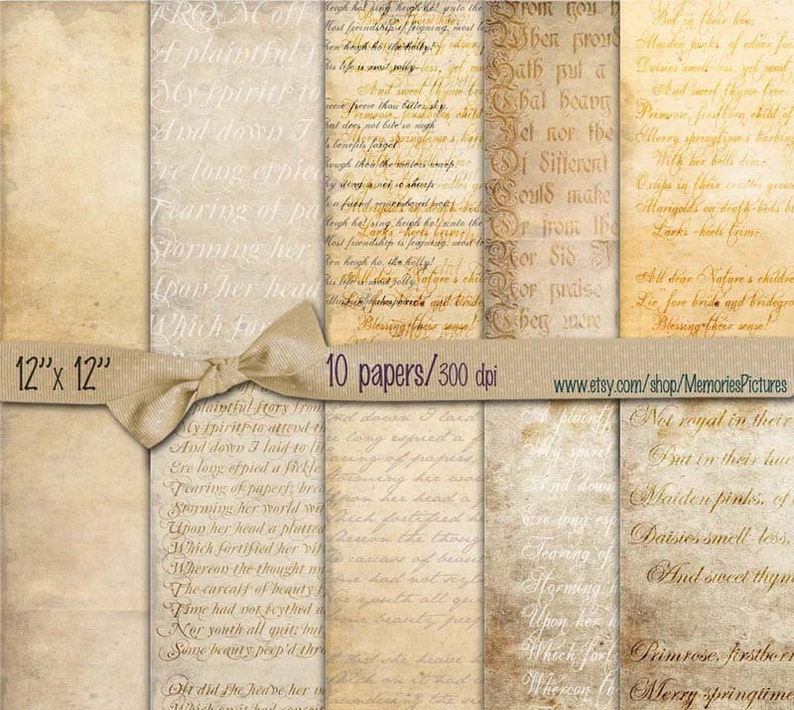 FROM off
A plaintful
My spirits to
And down I
Ere long espied
Tearing of pap
Storming her
Upon her head
Which fortif
Then heigh ho, the holly!
This life is most jolly.
Freeze freeze thou bitter sky
that does not bite so nigh
As benefits forgot
Though thou the waters warp,
thy sting is not so sharp
As a friend remembered not.
Heigh ho! sing, heigh ho! unto
Most friendship is feigning, most
Then heigh ho, the holly!
This life is most jolly.
All dear Nature's
Blessing their sense!
From you h
When proud
Hath put a
That heavy
Yet nor the
Of different
Could make
Or from the
Nor did I
Nor praise
They were
But in their hue;
Maiden pinks, of odour fain
Daisies smell-less, yet most
And sweet thyme true.
Primrose, firstborn child of
Merry springtime's harbing
With her bells dim.
Oxlips in their cradles grow
Marigolds on death-beds b
Larks-heels trim.
All dear Nature's children
Lie fore bride and bridegro
Blessing their sense!
12"x 12"
10 papers/300 dpi
www.etsy.com/shop/MemoriesPictures
A plaintful story from
My spirits to attend th
And down I laid to li
Ere long espied a fickle
Tearing of papers, brea
Storming her world wit
Upon her head a platted
Which fortified her vi
Whereon the thought m
The carcass of beauty
Time had not scythed a
Nor youth all quit; but
Some beauty peep'd thro
Oft did she heave her n
Which on it had concei
And down I laid
long espied a fi
earing of papers
orming her wor
her head a
hich fortified he
hereon the thou
carcass of beau
ime had not
youth all qui
ome beauty pee
did she heave
A plaintf
My spirit
And down
Ere long esp
Tearing of
Storming h
Upon her h
Which fort
Whereon t
Not royal in their
But in their hue
Maiden pinks, of
Daisies smell-less,
And sweet thym
Primrose, firstborn
Merry springtime